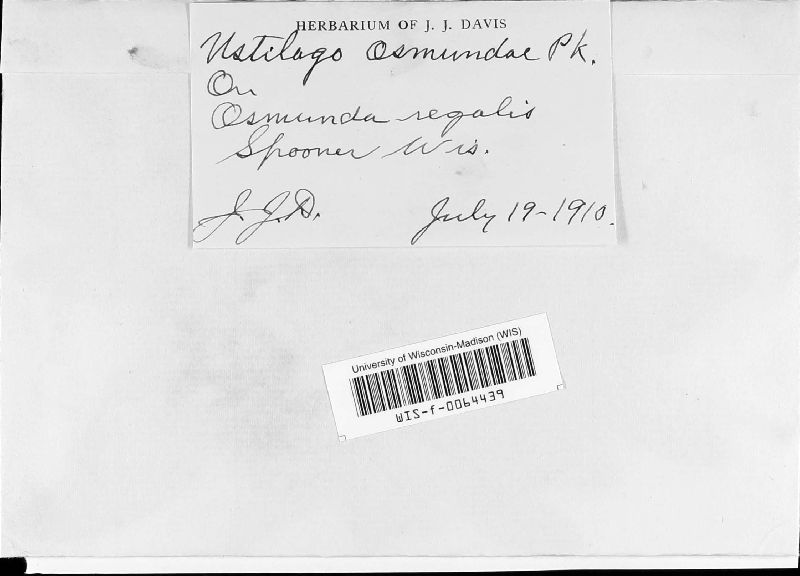 HERBARIUM OF J. J. DAVIS
Ustilago Osmundae Pk.
On
Osmunda regalis
Spooner Wis.
J. J. D. July 19-1910.
University of Wisconsin-Madison (WIS)
WIS-f-0064439